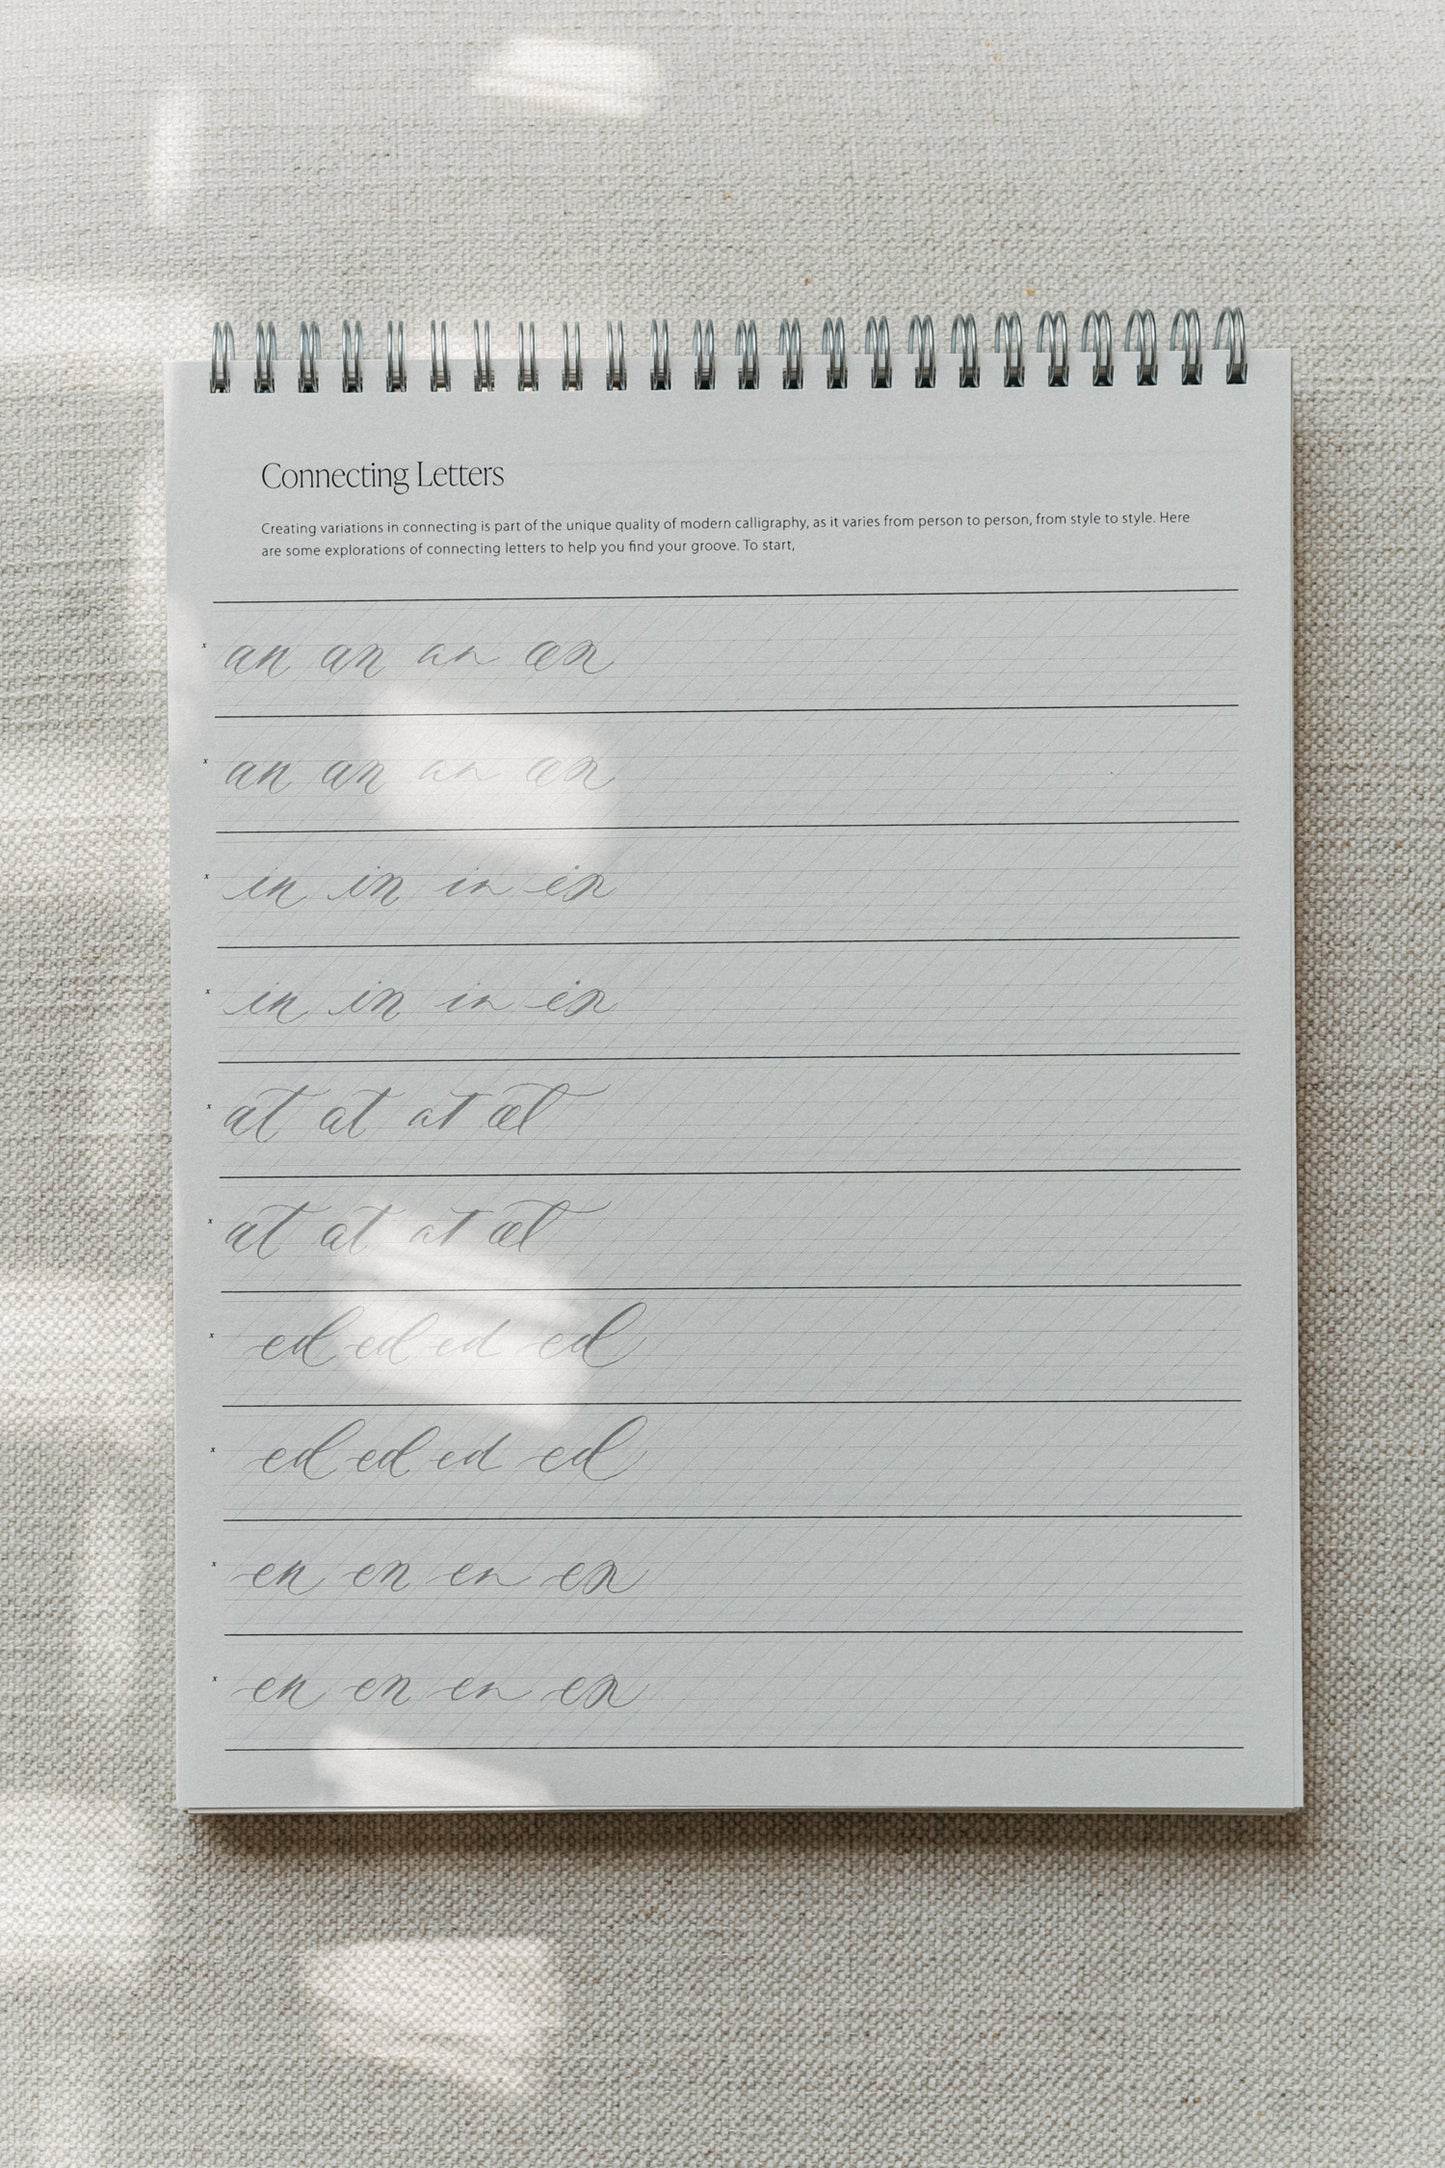 Connecting Letters
Creating variations in connecting is part of the unique quality of modern calligraphy, as it varies from person to person, from style to style. Here
are some explorations of connecting letters to help you find your groove. To start,
x an an an an
x an an an an
x in in in in
x in in in in
x at at at at
x at at at at
x ed ed ed ed
x ed ed ed ed
x en en en en
x en en en en